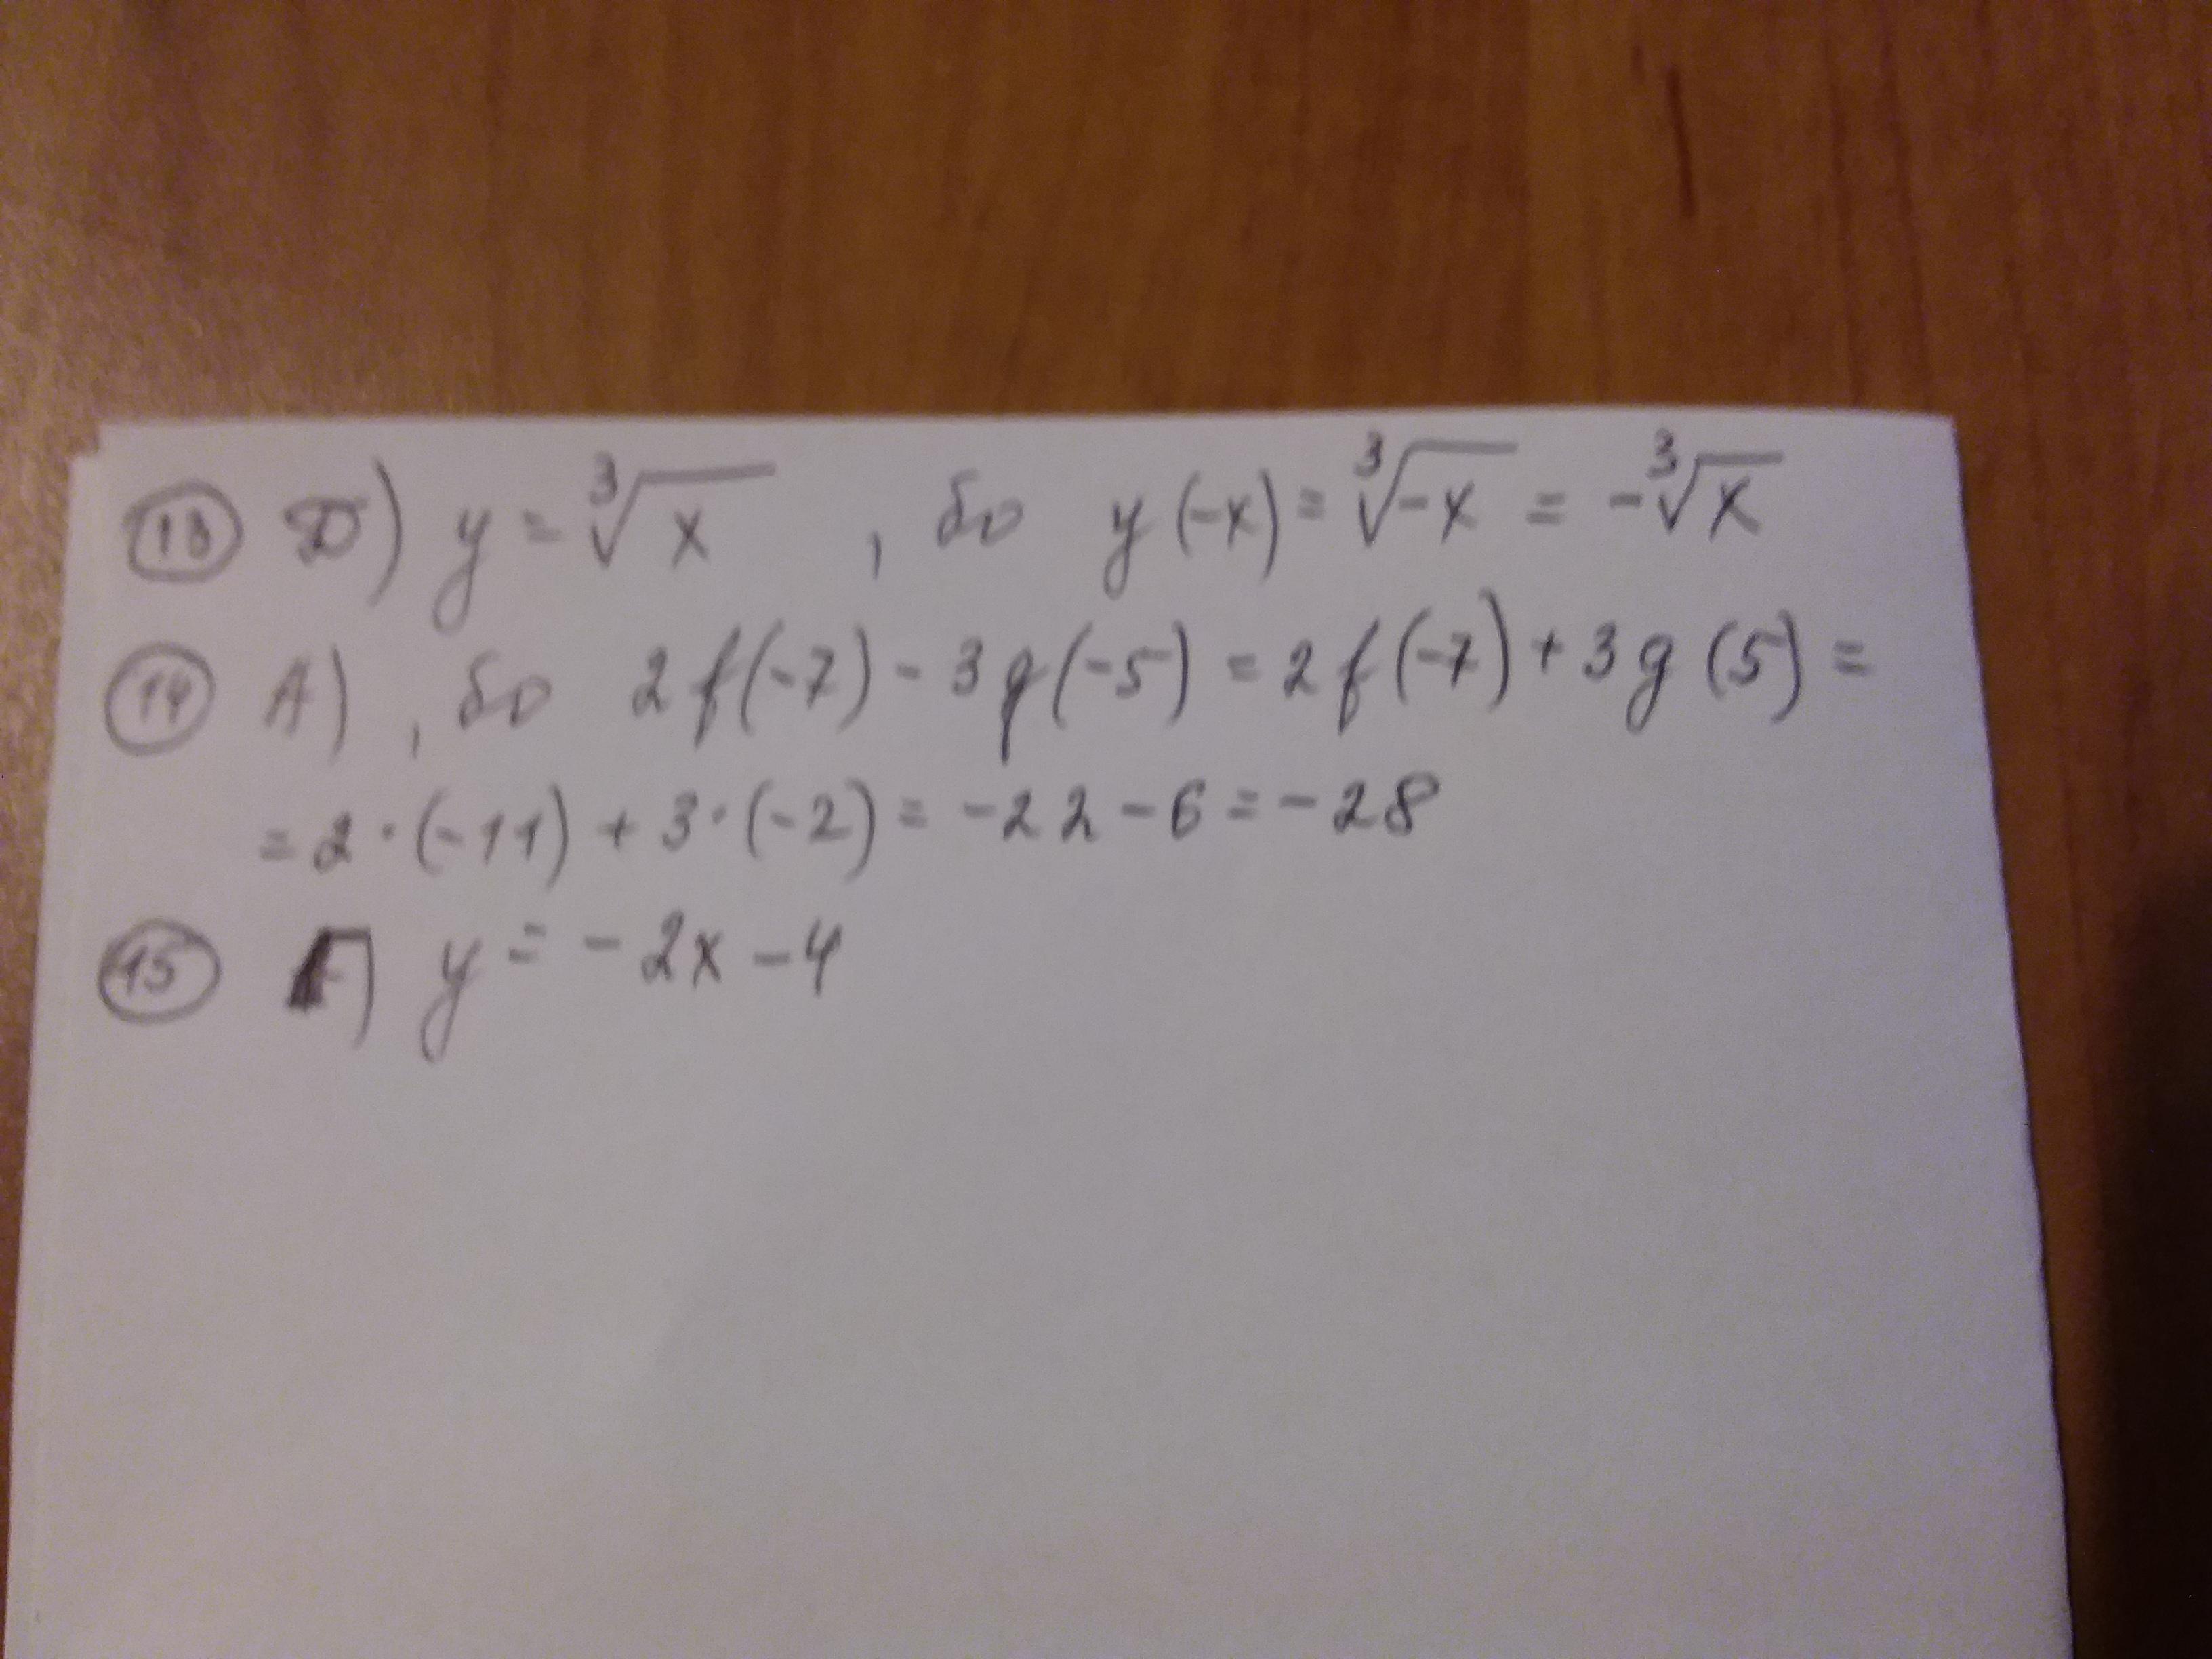 13 Д) y = ∛x , бо y(-x) = ∛-x = -∛x
14 А) , бо 2f(-7) - 3g(-5) = 2f(-7) + 3g(5) =
= 2·(-11) + 3·(-2) = -22 - 6 = -28
15 Г) y = -2x - 4